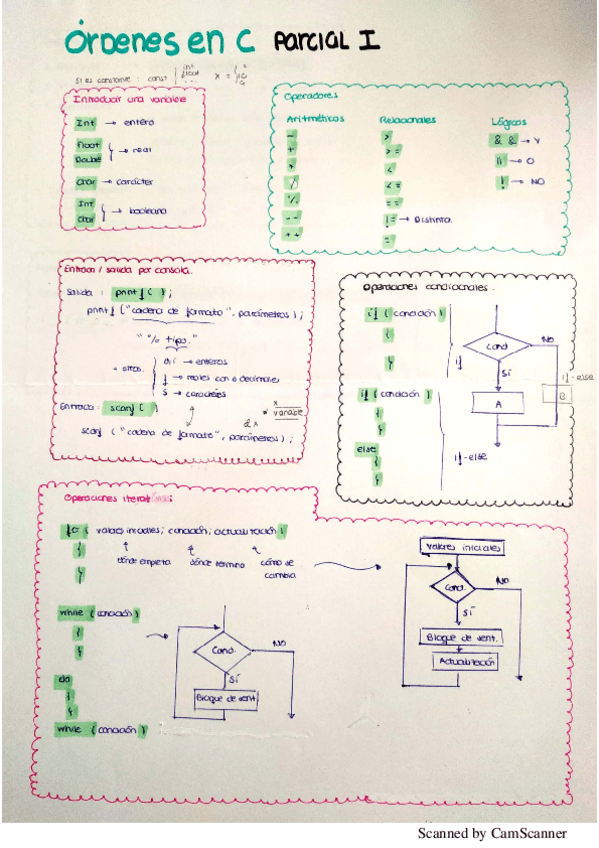 ÓRDENES EN C PARCIAL I
Si es constante: const
int
float
Introducir una variable
Int → entero
float
Double
→ real
char → carácter
Int
char
→ booleano
Operadores
Aritméticos
-
+
*
/
%
--
++
Relacionales
>
>=
<
<=
==
!= → Distinto
=
Lógicos
&& → Y
|| → O
! → NO
Entrada / salida por consola.
Salida: printf ( );
printf ("cadena de formato", parámetros);
"% tipo."
otros.
d/i → enteros
f → reales con 6 decimales
s → caracteres
Entrada: scanf ( )
x
variable
&x
scanf ("cadena de formato", parámetros);
Operaciones condicionales.
if (condición)
{
}
if
if (condición)
{
}
else
{
}
if-else
Cond
NO
Sí
A
if-else
B
Operaciones iterativas:
for (valores iniciales; condición; actualización)
{
}
dónde empieza
dónde termino
cómo se
cambia
while (condición)
{
}
do
{
}
while (condición)
Cond.
NO
Sí
Bloque de sent.
Valores iniciales
Cond.
NO
Sí
Bloque de sent.
Actualización
Scanned by CamScanner